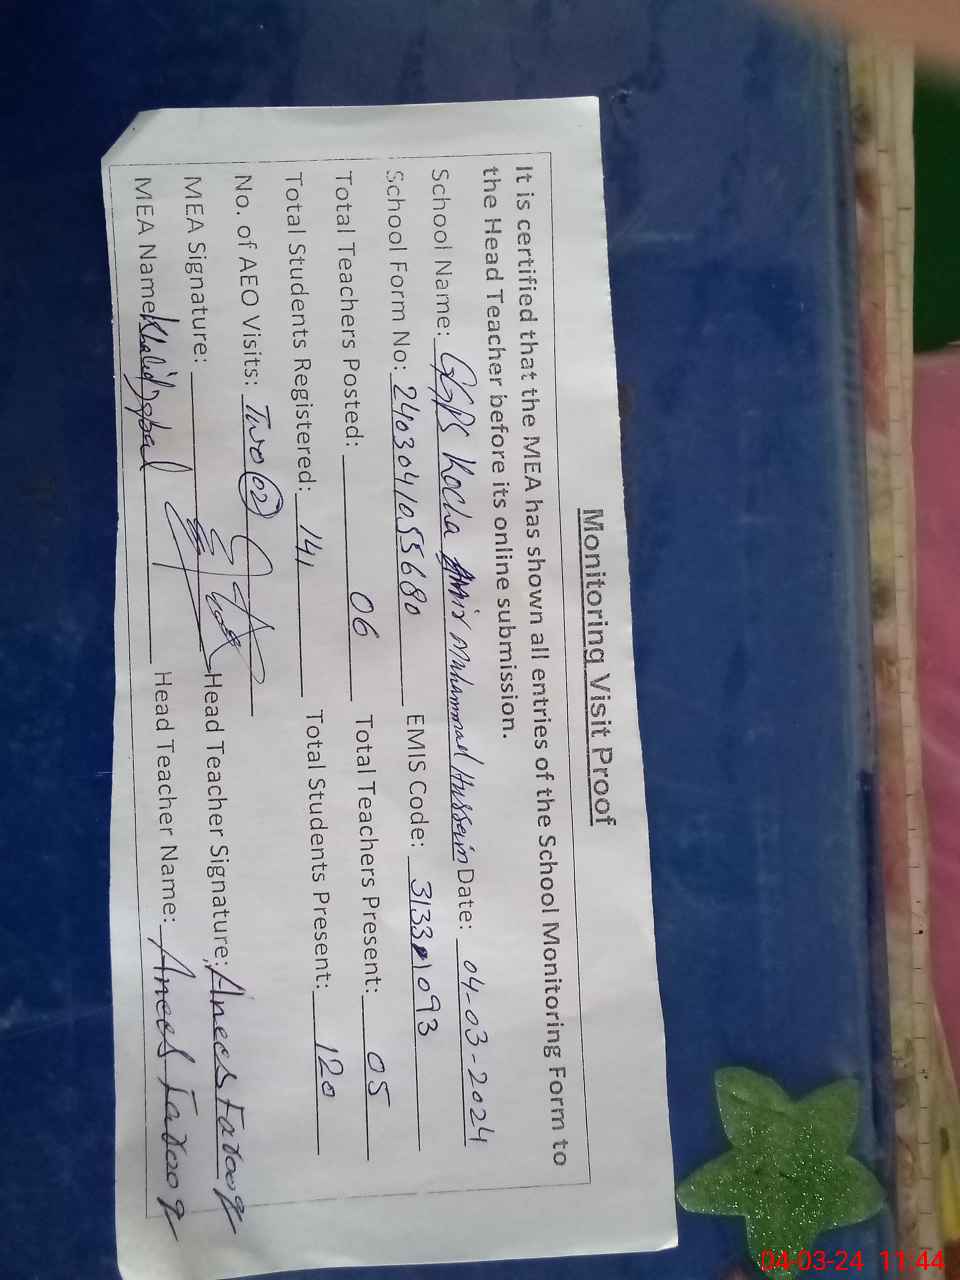 Monitoring Visit Proof
It is certified that the MEA has shown all entries of the School Monitoring Form to
the Head Teacher before its online submission.
School Name: GGPS Kocha Amir Muhammad Hussain Date: 04-03-2024
School Form No: 2403041055680 EMIS Code: 31331093
Total Teachers Posted: 06 Total Teachers Present: 05
Total Students Registered: 141 Total Students Present: 120
No. of AEO Visits: Two 02
MEA Signature: Head Teacher Signature: Anees Farooq
MEA Name Khalid Iqbal Head Teacher Name: Anees Farooq
04-03-24 11:44